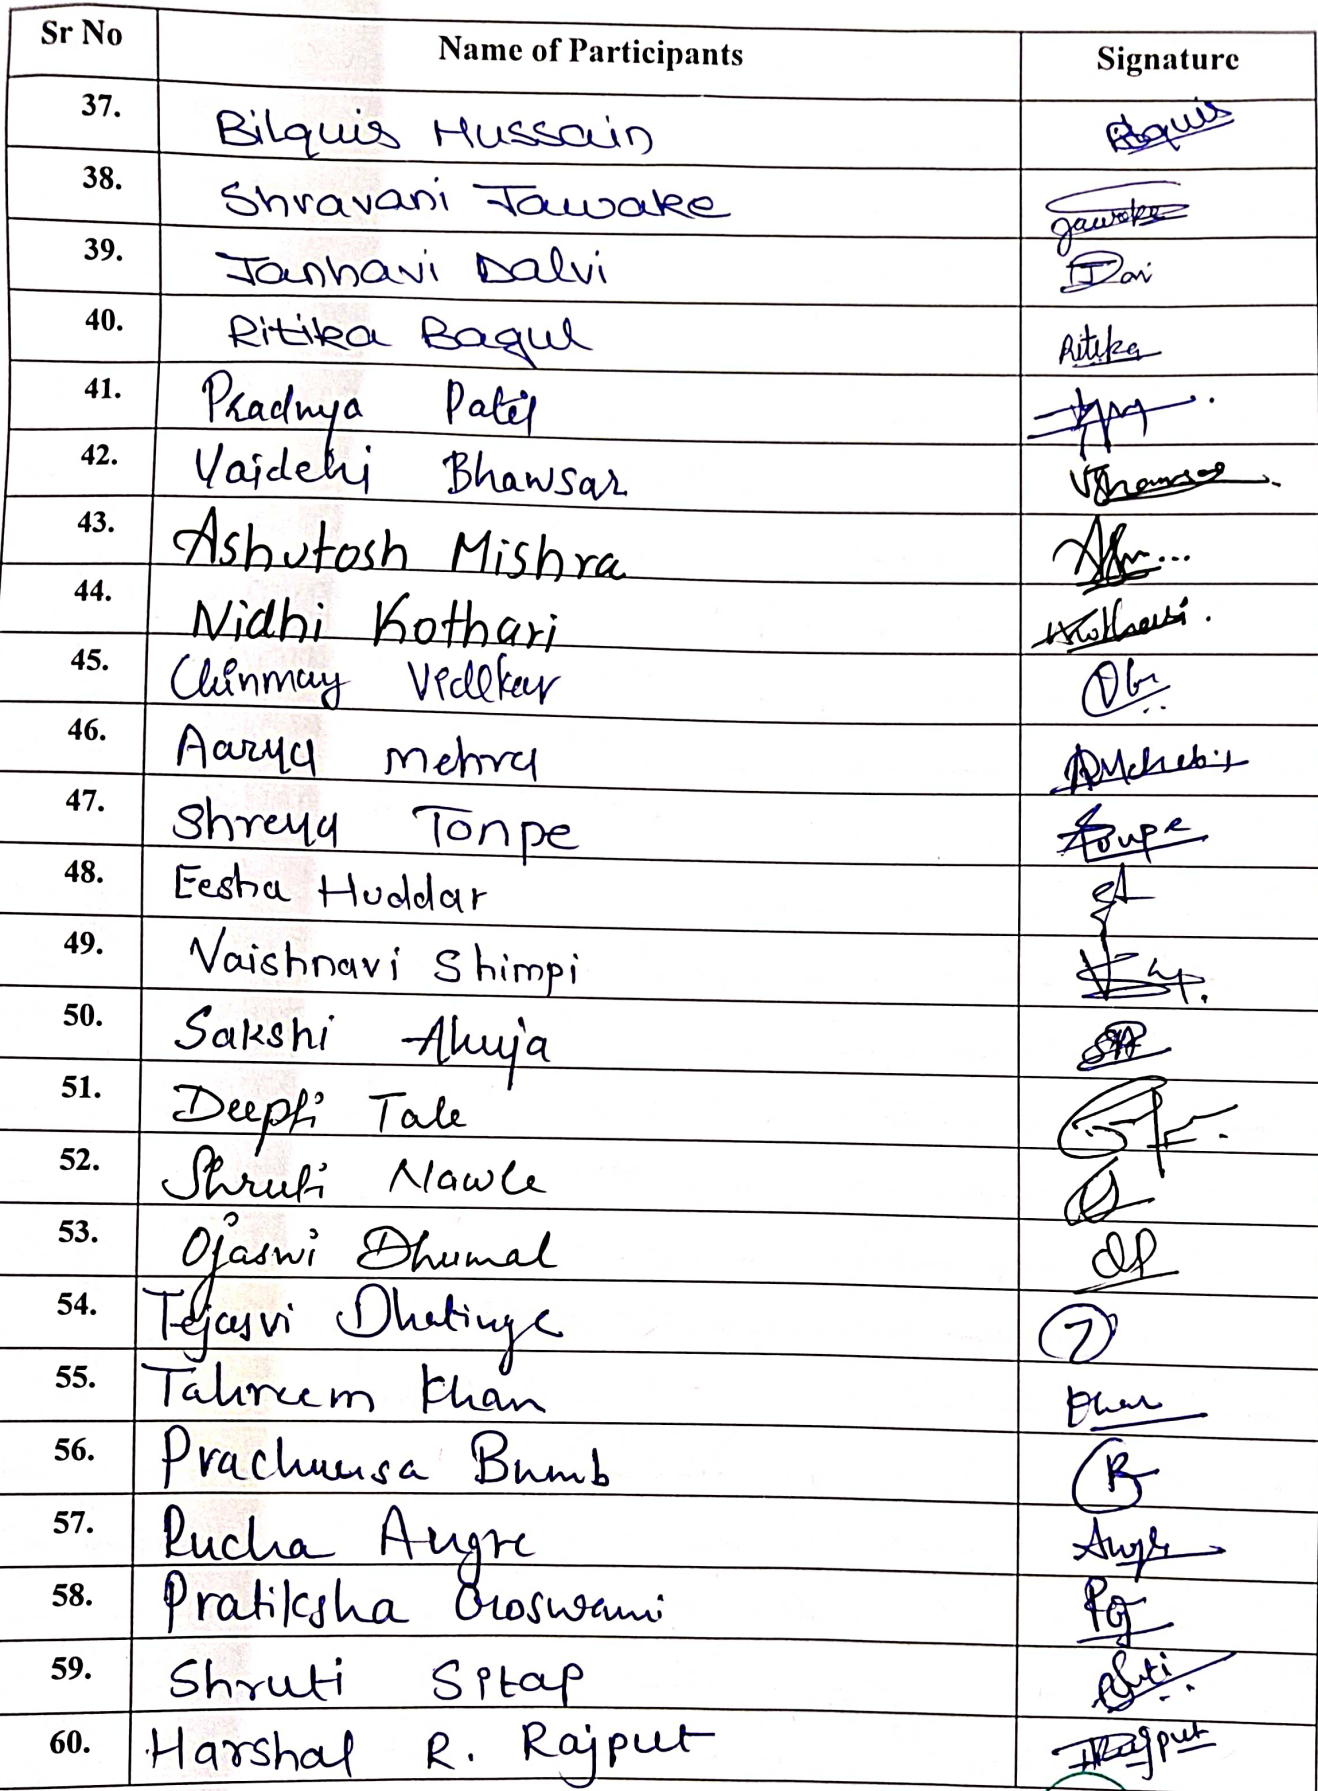 Sr No Name of Participants Signature
37. Bilquis Hussain Bilquis
38. Shravani Jawake Jawake
39. Janhavi Dalvi
40. Ritika Bagul Ritika
41. Pradnya Patil
42. Vaidehi Bhawsar VBhawsar
43. Ashutosh Mishra
44. Nidhi Kothari Kothari
45. Chinmay
46. Aarya Mehra
47. Shreya Tonpe Tonpe
48. Eesha Huddar
49. Vaishnavi Shimpi
50. Sakshi Ahuja
51. Deepti Tale
52. Shruti Nawle
53. Ojaswi Dhumal
54. Tejasvi
55. Tahreem Khan Khan
56. Bumb
57. Rucha Angre Angre
58. Pratiksha Goswami PG
59. Shruti
60. Harshal R. Rajput Rajput